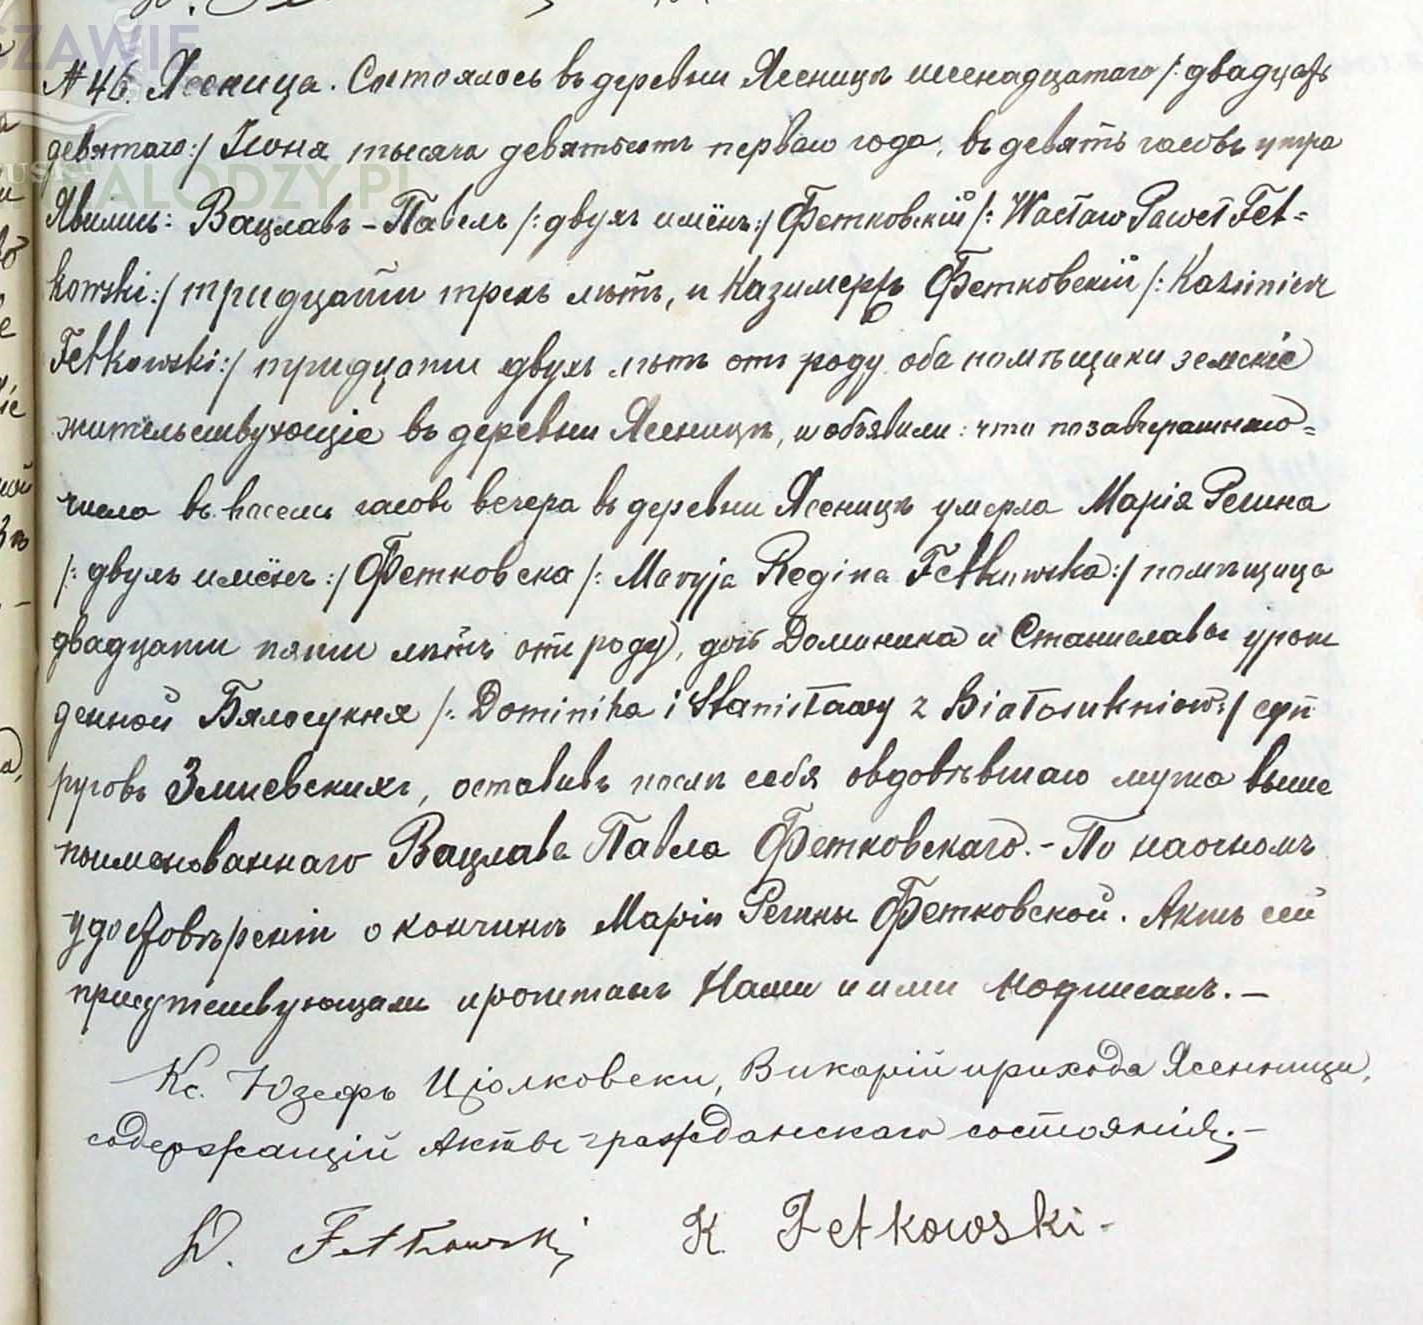 № 46. Ясеница. Состоялось въ деревни Ясеницѣ шеснадцатаго /: двадцать
девятаго :/ Іюня тысяча девятьсотъ перваго года, въ девять часовъ утра
Явились: Вацлавъ - Павелъ /: двухъ имёнъ :/ Фетковскій /: Wacław Paweł Fet=
kowski :/ тридцати трехъ лѣтъ, и Казимеръ Фетковскій /: Kazimierz
Fetkowski :/ тридцати двухъ лѣтъ отъ роду оба помѣщики земскіе
жительствующіе въ деревни Ясеницѣ, и объявили: что позавчерашнаго=
числа въ восемь часовъ вечера въ деревни Ясеницѣ умерла Марія Регина
/: двухъ имёнъ :/ Фетковска /: Maryja Regina Fetkowska :/ помѣщица
двадцати пяти лѣтъ отъ роду, дочь Доминика и Станиславы урож
денной Бялосукня /: Dominika i Stanisławy z Białosukniów :/ суп
руговъ Змиевскихъ, оставивъ послѣ себя овдовѣвшаго мужа выше
поименованнаго Вацлава Павла Фетковскаго. - По наочномъ
удостовѣреніи о кончинѣ Маріи Регины Фетковской. Актъ сей
присутствующимъ прочитанъ Нами и ими подписанъ. —
Кс. Юзефъ Ціолковски, Викарій прихода Ясенницы,
содержащій Акты гражданскаго состоянія. —
W. Fetkowski K. Fetkowski -
MALODZY.PL